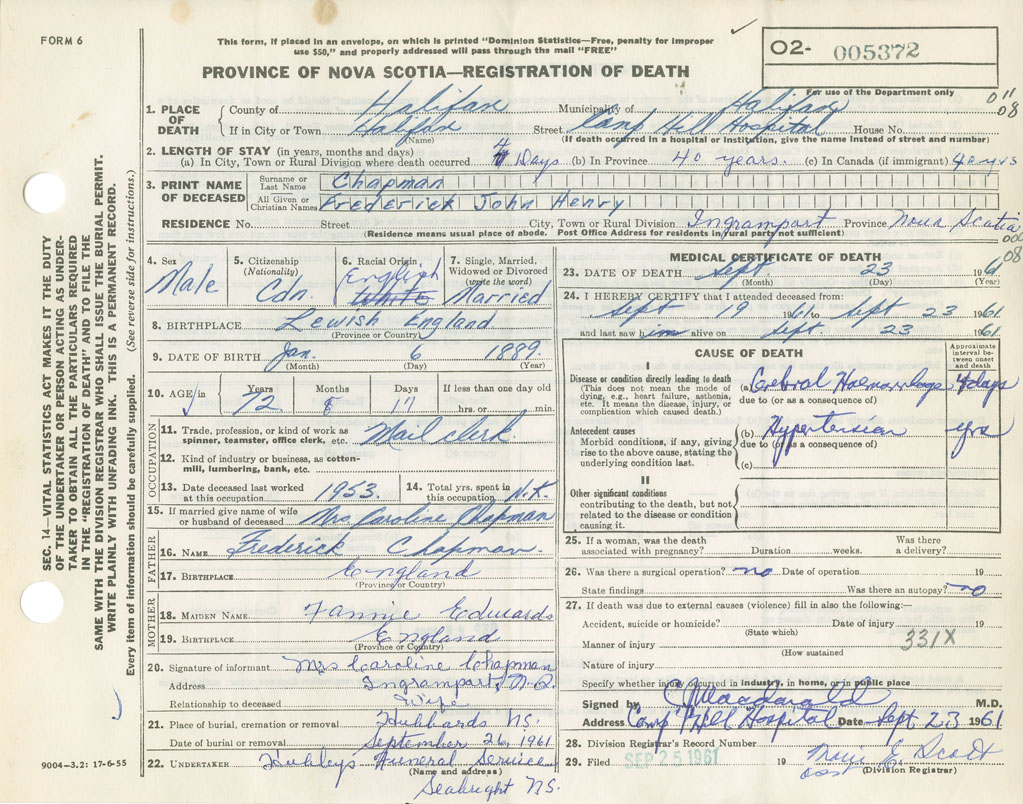 FORM 6
This form, if placed in an envelope, on which is printed "Dominion Statistics—Free, penalty for improper
use $50," and properly addressed will pass through the mail "FREE"
PROVINCE OF NOVA SCOTIA—REGISTRATION OF DEATH
O2- 005372
For use of the Department only
011
08
1. PLACE OF DEATH
County of Halifax Municipality of Halifax
If in City or Town Halifax Street Camp Hill Hospital House No.
(Name) (If death occurred in a hospital or institution, give the name instead of street and number)
2. LENGTH OF STAY (in years, months and days)
(a) In City, Town or Rural Division where death occurred 4 Days (b) In Province 40 years. (c) In Canada (if immigrant) 40 yrs
3. PRINT NAME OF DECEASED
Surname or Last Name Chapman
All Given or Christian Names Frederick John Henry
RESIDENCE No. Street City, Town or Rural Division Ingramport Province Nova Scotia
(Residence means usual place of abode. Post Office Address for residents in rural parts not sufficient)
000
08
4. Sex Male
5. Citizenship (Nationality) Cdn.
6. Racial Origin English White
7. Single, Married, Widowed or Divorced (write the word) Married
8. BIRTHPLACE Lewish England
(Province or Country)
9. DATE OF BIRTH Jan. 6 1889.
(Month) (Day) (Year)
10. AGE in Years Months Days If less than one day old
72 8 17 hrs. or min.
OCCUPATION
11. Trade, profession, or kind of work as spinner, teamster, office clerk, etc. Mail clerk.
12. Kind of industry or business, as cotton-mill, lumbering, bank, etc.
13. Date deceased last worked at this occupation 1953.
14. Total yrs. spent in this occupation N.K.
15. If married give name of wife or husband of deceased Mrs Caroline Chapman
FATHER
16. NAME Frederick Chapman.
17. BIRTHPLACE England
(Province or Country)
MOTHER
18. MAIDEN NAME. Fannie Edwards
19. BIRTHPLACE England
(Province or Country)
20. Signature of informant Mrs Caroline Chapman
Address Ingramport, N.S.
Relationship to deceased Wife
21. Place of burial, cremation or removal Hubbards NS.
Date of burial or removal September 26, 1961
22. UNDERTAKER Hubleys Funeral Service
(Name and address)
Seabright NS.
9004-3.2: 17-6-55
MEDICAL CERTIFICATE OF DEATH
23. DATE OF DEATH Sept 23 1961
(Month) (Day) (Year)
24. I HEREBY CERTIFY that I attended deceased from:
Sept 19 1961 to Sept 23 1961
and last saw him alive on Sept 23 1961
CAUSE OF DEATH
Approximate interval between onset and death
I
Disease or condition directly leading to death
(This does not mean the mode of dying, e.g., heart failure, asthenia, etc. It means the disease, injury, or complication which caused death.)
(a) Cerebral Haemorrhage 4 days
due to (or as a consequence of)
Antecedent causes
Morbid conditions, if any, giving rise to the above cause, stating the underlying condition last.
(b) Hypertension yrs
due to (or as a consequence of)
(c)
II
Other significant conditions contributing to the death, but not related to the disease or condition causing it.
25. If a woman, was the death associated with pregnancy? Duration weeks. Was there a delivery?
26. Was there a surgical operation? no Date of operation 19
State findings Was there an autopsy? no
27. If death was due to external causes (violence) fill in also the following:—
Accident, suicide or homicide? Date of injury 19
(State which)
331X
Manner of injury
(How sustained
Nature of injury
Specify whether injury occurred in industry, in home, or in public place
Signed by M.D.
Address Camp Hill Hospital Date Sept 23 1961
28. Division Registrar's Record Number
29. Filed SEP 25 1961 19
(Division Registrar)
SEC. 14—VITAL STATISTICS ACT MAKES IT THE DUTY
OF THE UNDERTAKER OR PERSON ACTING AS UNDER-
TAKER TO OBTAIN ALL THE PARTICULARS REQUIRED
IN THE "REGISTRATION OF DEATH" AND TO FILE THE
SAME WITH THE DIVISION REGISTRAR WHO SHALL ISSUE THE BURIAL PERMIT.
WRITE PLAINLY WITH UNFADING INK. THIS IS A PERMANENT RECORD.
Every item of information should be carefully supplied. (See reverse side for instructions.)